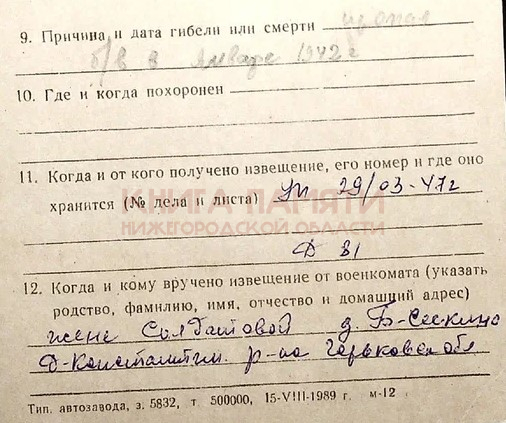 9. Причина и дата гибели или смерти пропал
б/в в январе 1942 г
10. Где и когда похоронен
11. Когда и от кого получено извещение, его номер и где оно
хранится (№ дела и листа) Уп 29/03-47г
КНИГА ПАМЯТИ
НИЖЕГОРОДСКОЙ ОБЛАСТИ
Д 81
12. Когда и кому вручено извещение от военкомата (указать
родство, фамилию, имя, отчество и домашний адрес)
жене Солдатовой д. Б-Сескино
Д-Константин. р-на Горьковск обл
Тип. автозавода, з. 5832, т. 500000, 15-VIII-1989 г. м-12